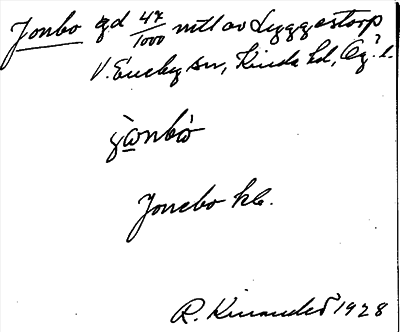 Jonbo gd 47/1000 mtl av Lyggestorp
V. Eneby sn, Kinda hd, Ög. l.
jònbò
Jonebo kb.
R. Kinander 1928